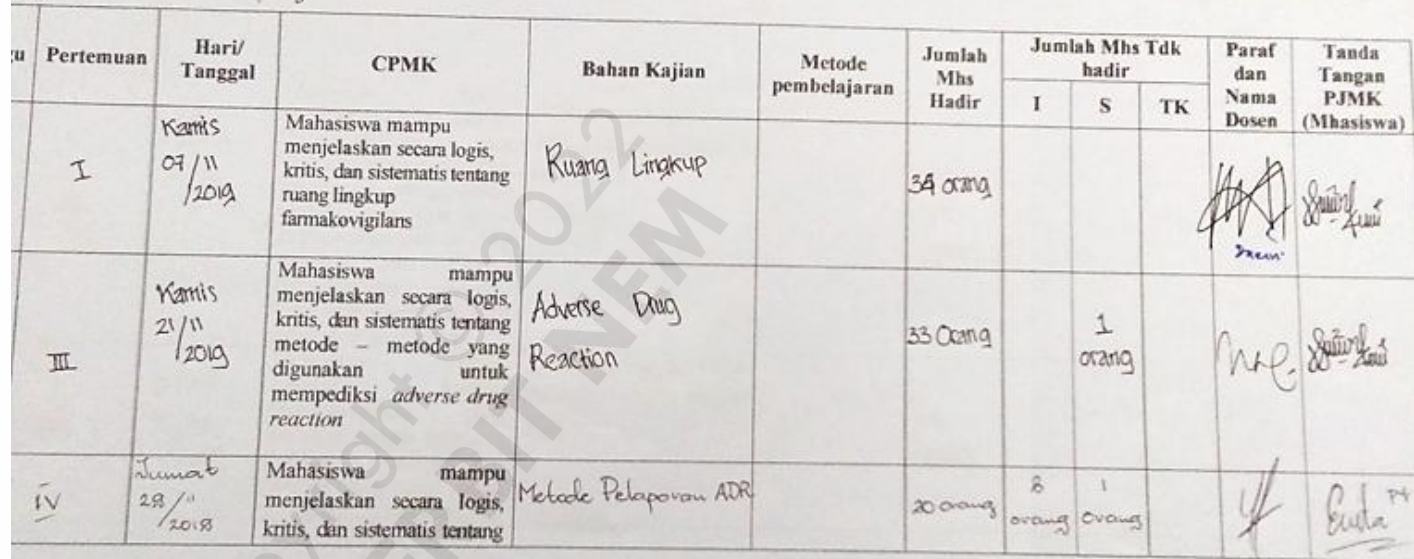 Pertemuan
Hari/
Tanggal
CPMK
Bahan Kajian
Metode
pembelajaran
Jumlah
Mhs
Hadir
Jumlah Mhs Tdk
hadir
I
S
TK
Paraf
dan
Nama
Dosen
Tanda
Tangan
PJMK
(Mhasiswa)
I
Kamis
07/11
/2019
Mahasiswa mampu
menjelaskan secara logis,
kritis, dan sistematis tentang
ruang lingkup
farmakovigilans
Ruang Lingkup
34 orang
III
Kamis
21/11
/2019
Mahasiswa mampu
menjelaskan secara logis,
kritis, dan sistematis tentang
metode – metode yang
digunakan untuk
mempediksi adverse drug
reaction
Adverse Drug
Reaction
33 Orang
1
orang
IV
Jumat
/2018
Mahasiswa mampu
menjelaskan secara logis,
kritis, dan sistematis tentang
Metode Pelaporan ADR
20 orang
orang
1
orang
© 2022
NEM